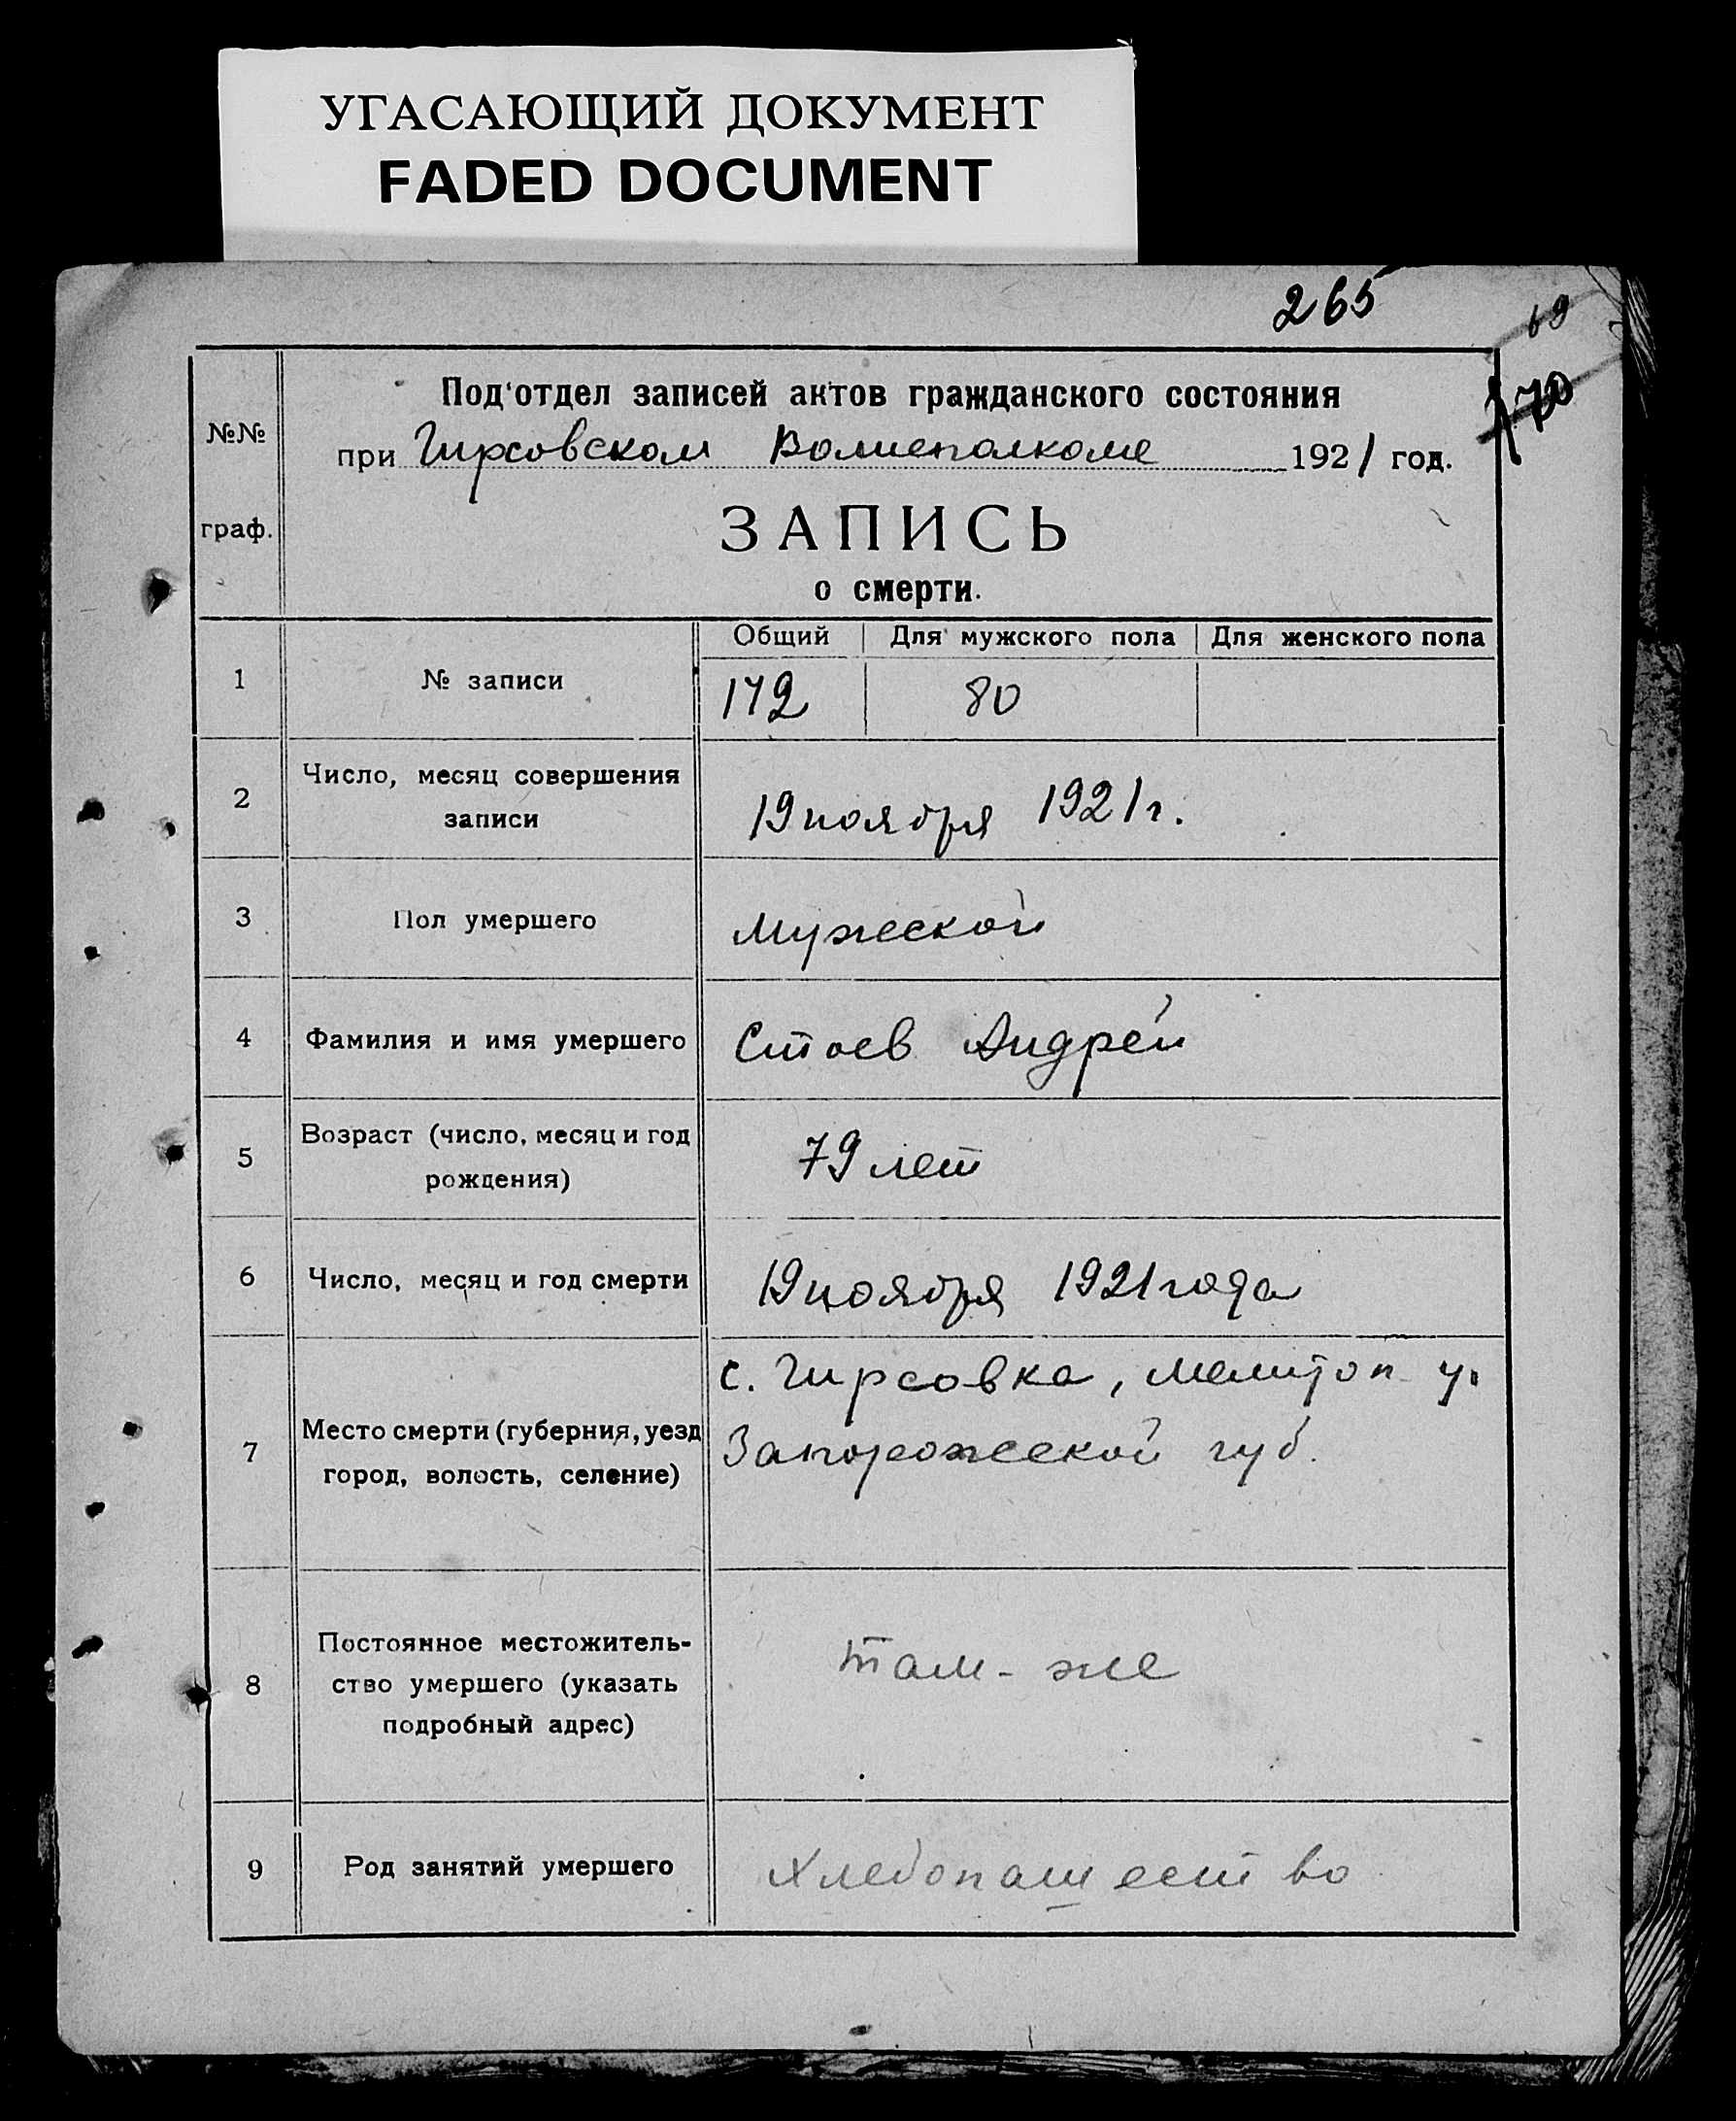 УГАСАЮЩИЙ ДОКУМЕНТ
FADED DOCUMENT
265
69
70
Под'отдел записей актов гражданского состояния
№№
при Гирсовском Волисполкоме 1921 год.
граф.
ЗАПИСЬ
о смерти.
Общий Для мужского пола Для женского пола
1 № записи 172 80
2 Число, месяц совершения
записи
19 ноября 1921 г.
3 Пол умершего Мужеской
4 Фамилия и имя умершего Стоев Андрей
5 Возраст (число, месяц и год
рождения)
79 лет
6 Число, месяц и год смерти 19 ноября 1921 года
7 Место смерти (губерния, уезд
город, волость, селение)
с. Гирсовка, Мелитоп у.
Запорожеской губ.
8 Постоянное местожитель-
ство умершего (указать
подробный адрес)
там-же
9 Род занятий умершего Хлебопашество